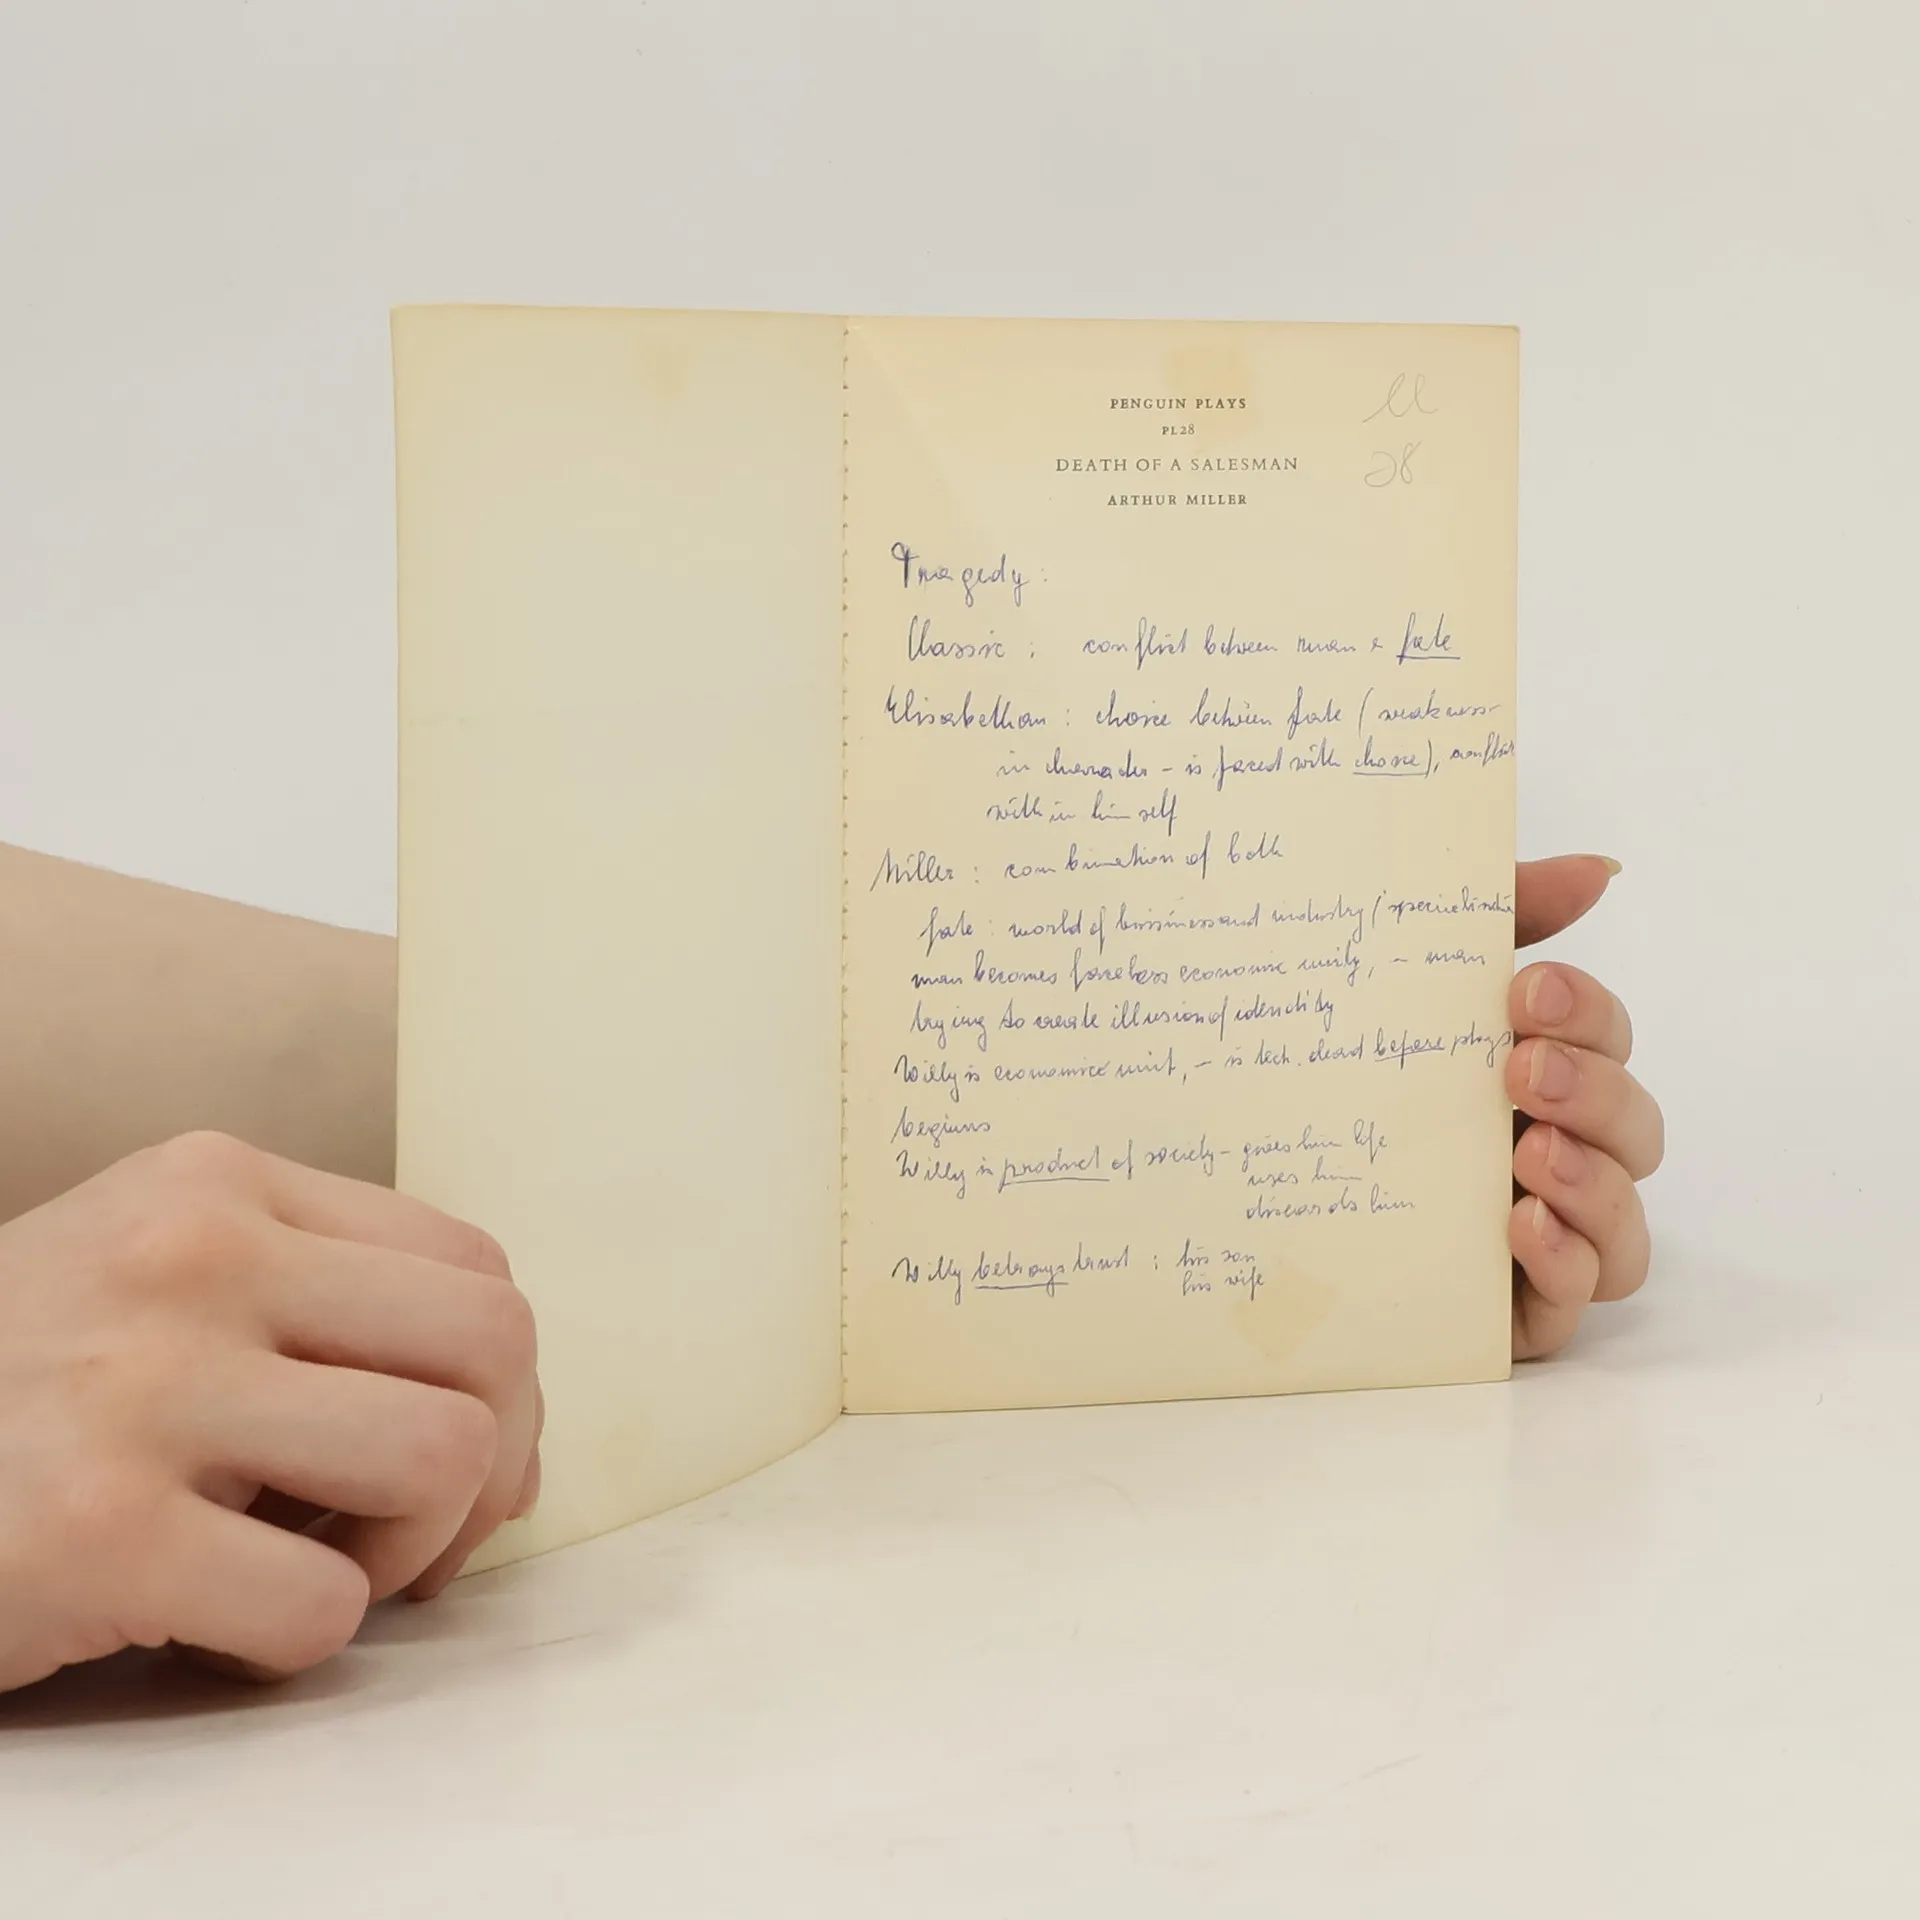 PENGUIN PLAYS
PL28
DEATH OF A SALESMAN
ARTHUR MILLER
28
Tragedy:
Classic : conflict between man & fate
Elisabethan : choice between fate (weakness
in character - is faced with choice), conflict
within himself
Miller : combination of both
fate : world of bussiness and industry (
man becomes faceless economic unity, - man
trying to create illusion of identity
Willy is economic unit, - is tech. dead before plays
begins
Willy is product of society - gives him life
uses him
discards him
Willy betrays trust : his son
his wife